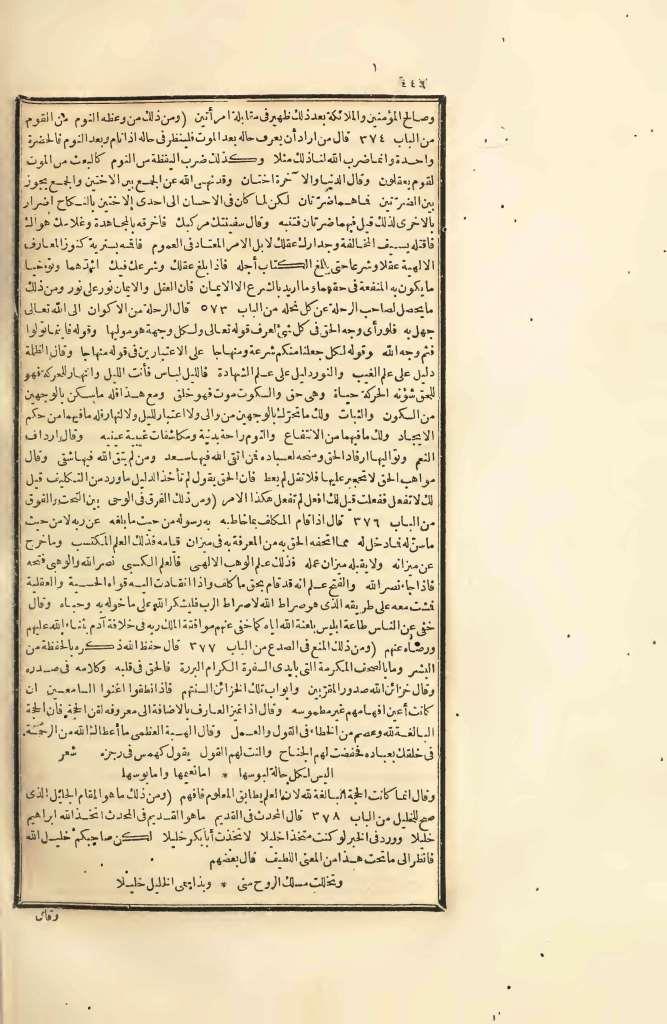 ٤٤٥
وصالح المؤمنين والملائكة بعد ذلك ظهير فى مقابلة امرأتين (ومن ذلك من وعظه النوم من القوم
من الباب ٣٧٤ قال من اراد أن يعرف حاله بعد الموت فلينظر فى حاله اذا نام وبعد النوم فالحضرة
واحدة وانما ضرب الله لنا ذلك مثلا وكذلك ضرب اليقظة من النوم كالبعث من الموت
لقوم يعقلون وقال الدنيا والآخرة اختان وقد نهى الله عن الجمع بين الاختين والجمع يجوز
بين الضرتين فما هما ضرتان لكن لما كان فى الاحسان الى احدى الاختين بالنكاح اضرار
بالاخرى لذلك قيل فيهما ضرتان فتنبه وقال سفينتك مركبك فاخرقه بالمجاهدة وغلامك هواك
فاقتله بسيف المخالفة وجدارك عقلك لا بل الامر المعتاد فى العموم فاقمه بستر به كنوز المعارف
الالهية عقلا وشرعا حتى يبلغ الكتاب أجله فاذا بلغ عقلك وشرعك فيك اشدهما وتوخيا
ما يكون به المنفعة فى حقهما وما اريد بالشرع الا الايمان فان العقل والايمان نور على نور ومن ذلك
ما يحصل لصاحب الرحلة عن كل نحلة من الباب ٥٧٣ قال الرحلة من الاكوان الى الله تعالى
جهل به فلو رأى وجه الحق فى كل شئ لعرف قوله تعالى ولكل وجهة هو موليها وقوله فاينما تولوا
فثم وجه الله وقوله لكل جعلنا منكم شرعة ومنهاجا على الاعتبارين فى قوله منهاجا وقال الظلمة
دليل على علم الغيب والنور دليل على علم الشهادة فالليل لباس فأنت الليل والنهار للحركة فهو
للحق شؤنه الحركة حياة وهى حق والسكوت موت فهو خلق ومع هذا فله ما سكن بالوجهين
من السكون والثبات ولك ما تحرك بالوجهين من والى ولا اعتبار لليل ولا نهار فله ما فيهما من حكم
الايجاد ولك ما فيهما من الانتفاع والنوم راحة بدنية ومكاشفات غيبية عينيه وقال ارداف
النعم وتواليها ارفاد الحق ومنحه لعباده فمن اتقى الله فيها سعد ومن لم يتق الله فيها شقى وقال
مواهب الحق لا تحجير عليها فلا تقل لم يعط فان الحق يقول لم تأخذ الدليل ما ورد من التكليف قيل
لك لا تفعل ففعلت قيل لك افعل لم تفعل هكذا الامر (ومن ذلك الفرق فى الوحى بين التحت والفوق
من الباب ٣٧٦ قال اذا قام المكلف بما خاطبه به رسوله من حيث ما بلغه عن ربه لا من حيث
ما سن له فما دخل له مما اتحفه الحق به من المعرفة به فى ميزان قيامه فذلك العلم المكتسب وما خرج
عن ميزانه ولا يقبله ميزان عمله فذلك علم الوهب الالهى فالعلم الكسبى نصر الله والوهبى فتحه
فاذا جاء نصر الله والفتح علم انه قد قام بحق ما كلف واذا انقادت اليه قواه الحسية والعقلية
فشت معه على طريقه الذى هو صراط الله لا صراط الرب فليشكر الله على ما خوله به وحباه وقال
خفى عن الناس طاعة ابليس بلعنة الله اياه كما خفى عنهم موافقة الملك ربه فى خلافة آدم بثناء الله عليهم
ورضاه عنهم (ومن ذلك المنع فى الصدع من الباب ٣٧٧ قال حفظ الله ذكره بالحفظة من
البشر وما بالصحف المكرمة التى بايدى السفرة الكرام البررة فالحق فى قلبه وكلامه فى صدره
وقال خزائن الله صدور المقربين وابواب تلك الخزائن السنتهم فاذا نطقوا اغنوا السامعين ان
كانت أعين افهامهم غير مطموسه وقال اذا تميز العارف بالاضافة الى معروفه لقن الحجة فان الحجة
البالغة لله وعصم من الخطاء فى القول والعمل وقال الهبة العظمى ما أعطاك الله من الرحمة
فى خلقك بعباده فخفضت لهم الجناح والنت لهم القول يقول كهمس فى رجزه شعر
البس لكل حالة لبوسها * اما نعيمها واما بوسها
وقال انما كانت الحجة البالغة لله لان العلم يطابق المعلوم فافهم (ومن ذلك ما هو المقام الجليل الذى
صح للخليل من الباب ٣٧٨ قال المحدث فى القديم ما هو القديم فى المحدث اتخذ الله ابراهيم
خليلا وورد فى الخبر لو كنت متخذا خليلا لاتخذت أبا بكر خليلا لكن صاحبكم خليل الله
فانظر الى ما تحت هذا من المعنى اللطيف قال بعضهم
وتخللت مسلك الروح منى * وبذا سمى الخليل خليلا
وقال